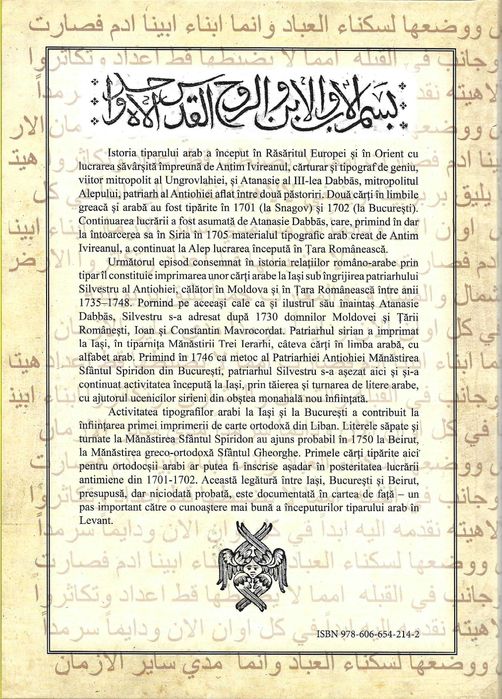 بسم الاب والابن والروح القدس الاه واحد
Istoria tiparului arab a început în Răsăritul Europei și în Orient cu
lucrarea săvârșită împreună de Antim Ivireanul, cărturar și tipograf de geniu,
viitor mitropolit al Ungrovlahiei, și Atanasie al III-lea Dabbās, mitropolitul
Alepului, patriarh al Antiohiei aflat între două păstoriri. Două cărți în limbile
greacă și arabă au fost tipărite în 1701 (la Snagov) și 1702 (la București).
Continuarea lucrării a fost asumată de Atanasie Dabbās, care, primind în dar
la întoarcerea sa în Siria în 1705 materialul tipografic arab creat de Antim
Ivireanul, a continuat la Alep lucrarea începută în Țara Românească.
Următorul episod consemnat în istoria relațiilor româno-arabe prin
tipar îl constituie imprimarea unor cărți arabe la Iași sub îngrijirea patriarhului
Silvestru al Antiohiei, călător în Moldova și în Țara Românească între anii
1735–1748. Pornind pe aceeași cale ca și ilustrul său înaintaș Atanasie
Dabbās, Silvestru s-a adresat după 1730 domnilor Moldovei și Țării
Românești, Ioan și Constantin Mavrocordat. Patriarhul sirian a imprimat
la Iași, în tiparnița Mănăstirii Trei Ierarhi, câteva cărți în limba arabă, cu
alfabet arab. Primind în 1746 ca metoc al Patriarhiei Antiohiei Mănăstirea
Sfântul Spiridon din București, patriarhul Silvestru s-a așezat aici și și-a
continuat activitatea începută la Iași, prin tăierea și turnarea de litere arabe,
cu ajutorul ucenicilor sirieni din obștea monahală nou înființată.
Activitatea tipografilor arabi la Iași și la București a contribuit la
înființarea primei imprimerii de carte ortodoxă din Liban. Literele săpate și
turnate la Mănăstirea Sfântul Spiridon au ajuns probabil în 1750 la Beirut,
la Mănăstirea greco-ortodoxă Sfântul Gheorghe. Primele cărți tipărite aici
pentru ortodocșii arabi ar putea fi înscrise așadar în posteritatea lucrării
antimiene din 1701-1702. Această legătură între Iași, București și Beirut,
presupusă, dar niciodată probată, este documentată în cartea de față – un
pas important către o cunoaștere mai bună a începuturilor tiparului arab în
Levant.
ISBN 978-606-654-214-2
ووضعها لسكناء العباد وانما مدي ساير الازمان